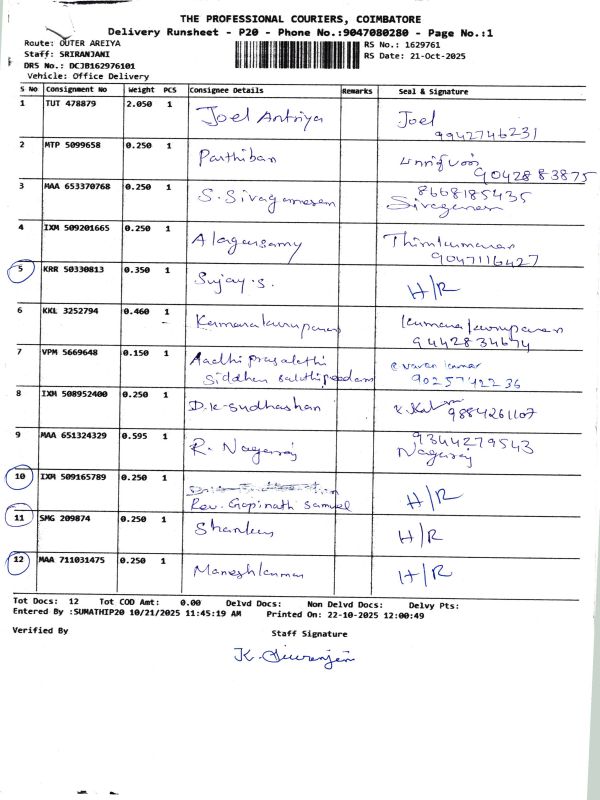 THE PROFESSIONAL COURIERS, COIMBATORE
Delivery Runsheet - P20 - Phone No.:9047080280 - Page No.:1
Route: OUTER AREIYA
Staff: SRIRANJANI
DRS No.: DCJB162976101
Vehicle: Office Delivery
RS No.: 1629761
RS Date: 21-Oct-2025
S No Consignment No Weight PCS Consignee Details Remarks Seal & Signature
1 TUT 478879 2.050 1 Joel Antriya Joel
9942746231
2 MTP 5099658 0.250 1 Parthiban பார்த்திபன்
9042883875
3 MAA 653370768 0.250 1 S. Sivagamesan 8668185435
4 IXM 509201665 0.250 1 Alagarsamy Thirukumaran
9047116427
5 KRR 50330813 0.350 1 Sujay.s. H/R
6 KKL 3252794 0.460 1 Kumarakuruparan Kumarakuruparan
9442834674
7 VPM 5669648 0.150 1 Aadhi prasakthi
Siddhar sakthipeedam
9025742236
8 IXM 508952400 0.250 1 D.K-Sudharshan 9884261107
9 MAA 651324329 0.595 1 R. Nagaraj 9344279543
Nagaraj
10 IXM 509165789 0.250 1 Rev. Gopinath Samuel H/R
11 SMG 209874 0.250 1 H/R
12 MAA 711031475 0.250 1 Maneshkumar H/R
Tot Docs: 12 Tot COD Amt: 0.00 Delvd Docs: Non Delvd Docs: Delvy Pts:
Entered By :SUMATHIP20 10/21/2025 11:45:19 AM Printed On: 22-10-2025 12:00:49
Verified By
Staff Signature